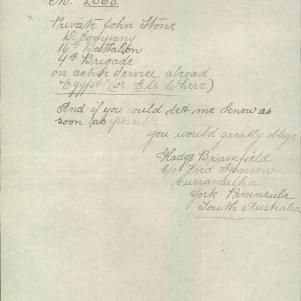 No. 2868.
x Private John Stone
D. Company
16th Battalion
4th Brigade
on active service abroad
Egypt (or Els Where)
And if you could let me know as
soon as possible
you would greatly oblige
Gladys Bramfield
c/o Fred Sparrow
Curramulka
York Peninsula
South Australia